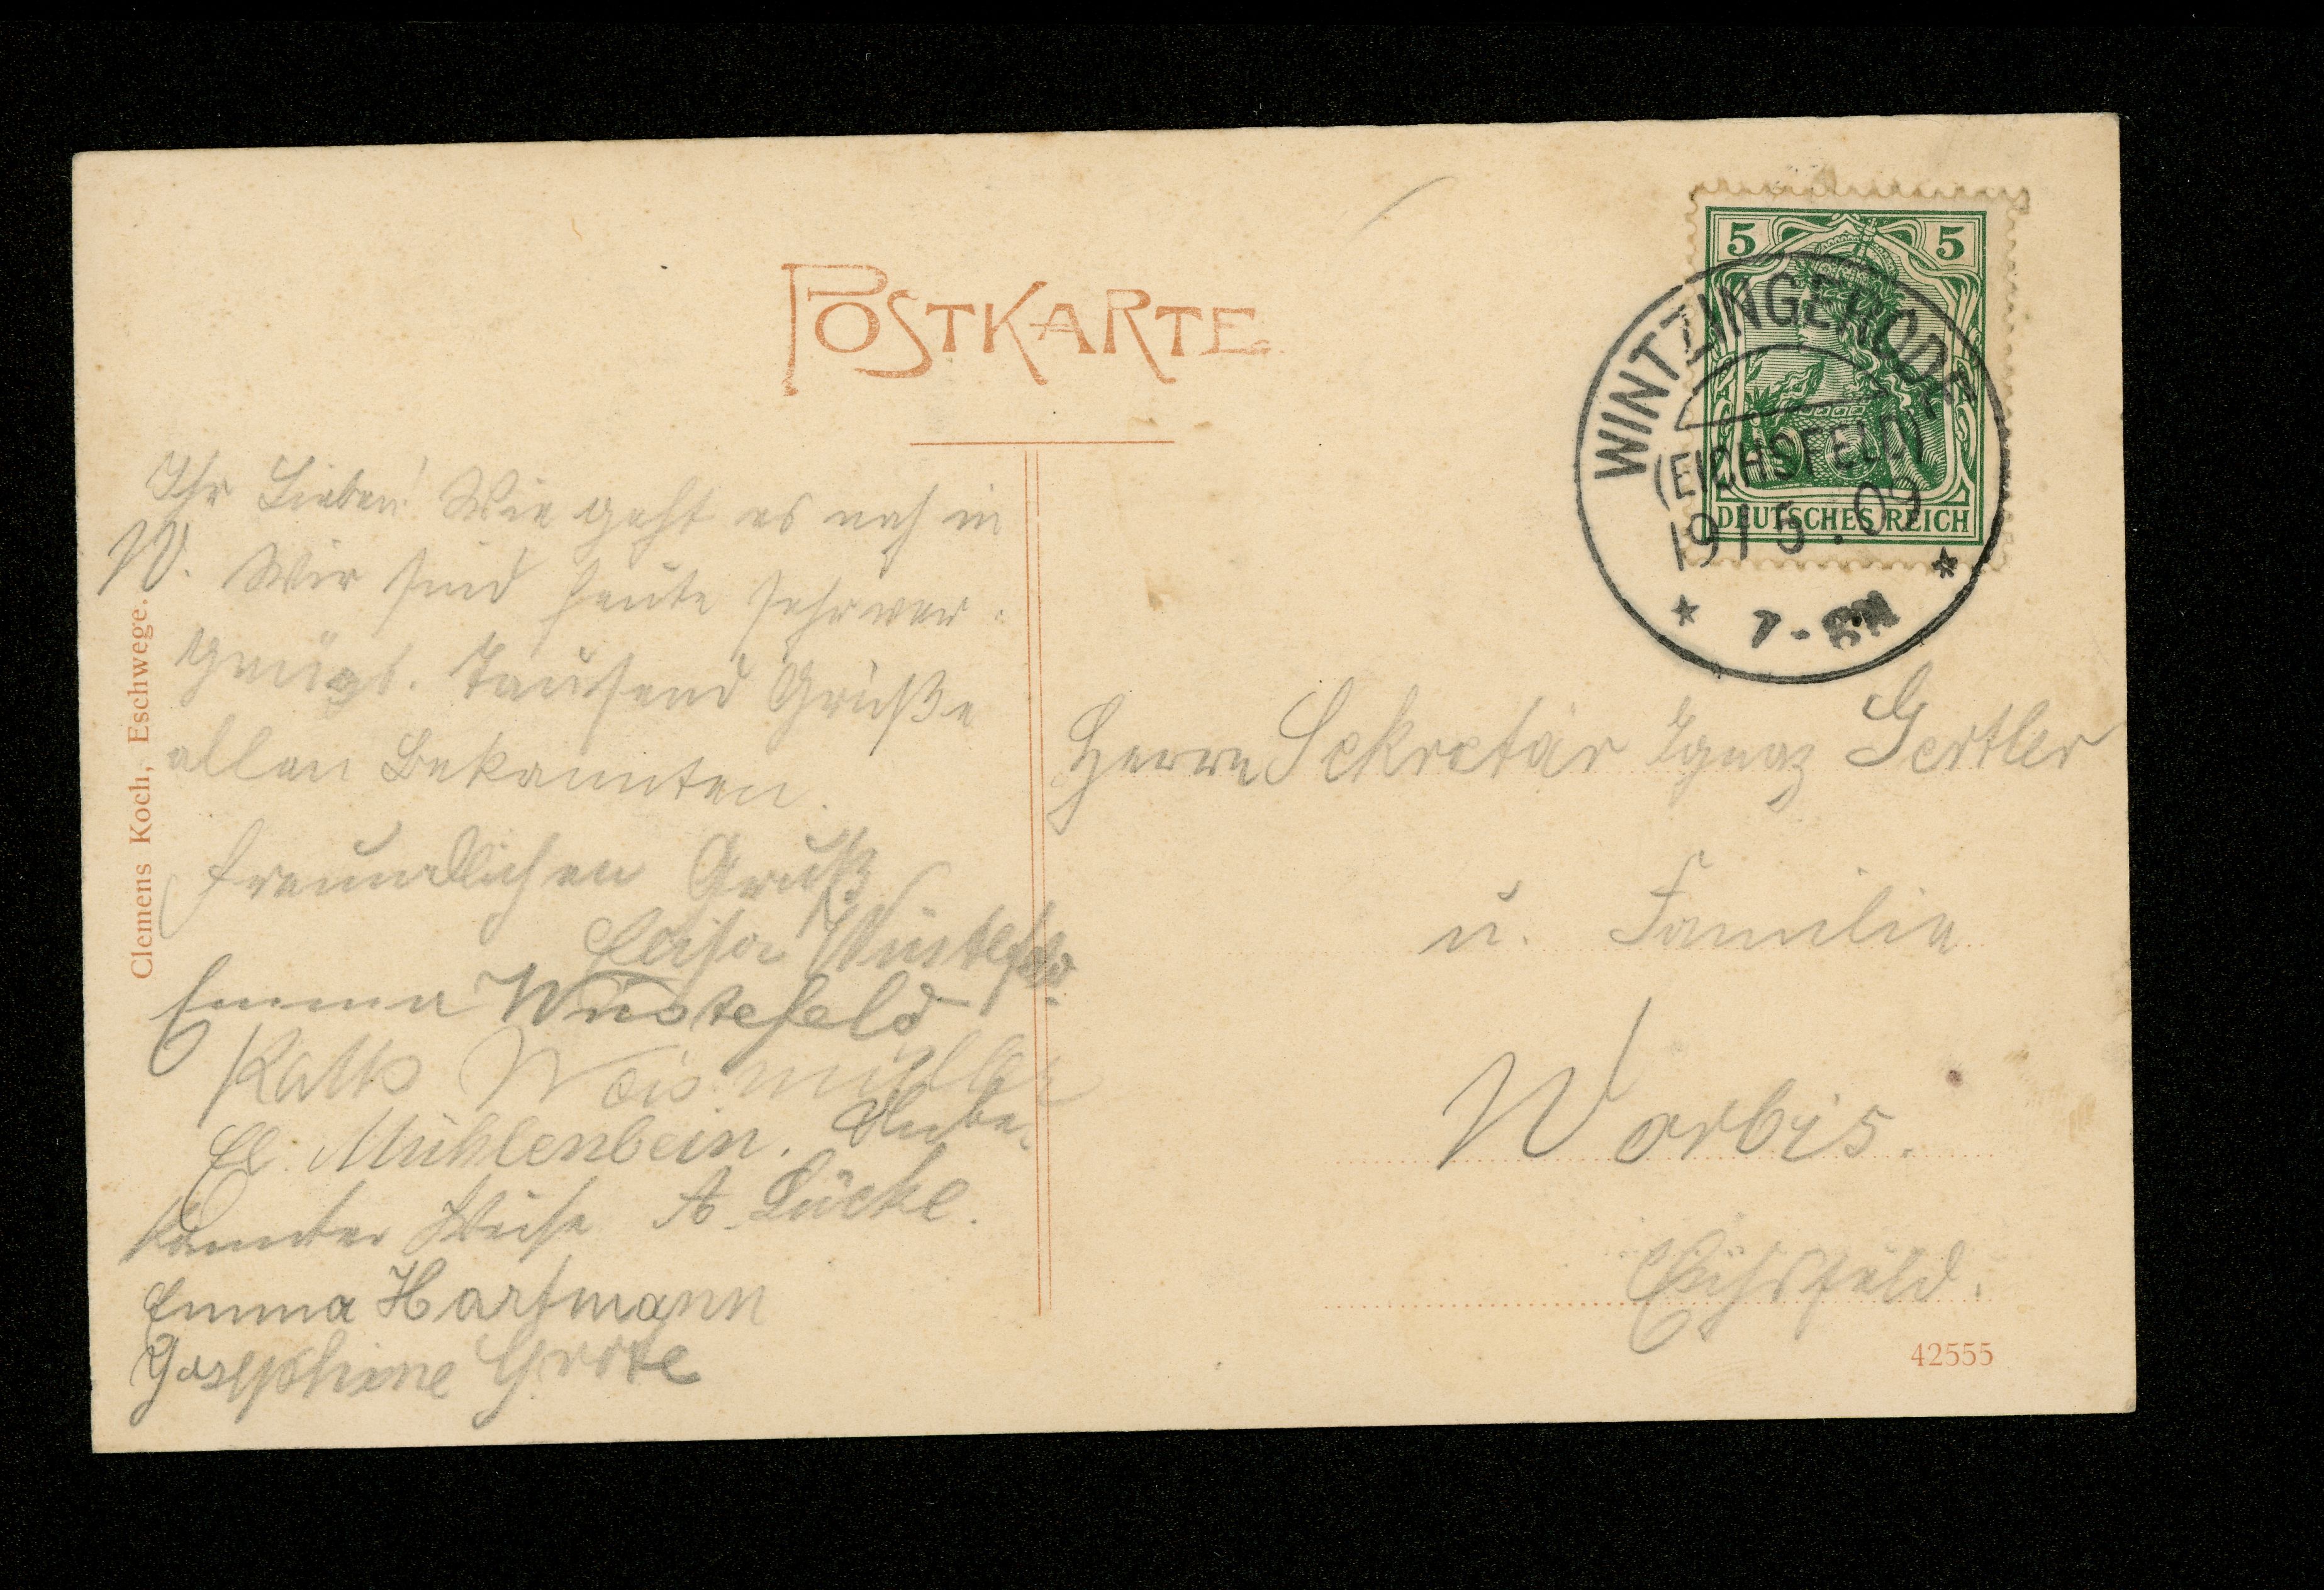 POSTKARTE
5 5
DEUTSCHES REICH
WINTZINGERODE
(EICHSFELD)
19 / 5 . 09
* 7-8N *
Ihr Lieben! Wie geht es noch in
W. Wir sind heute sehr ver-
gnügt. Tausend Grüße
allen Bekannten.
Freundlichen Gruß
Luisa Wüstefeld
Emma Wüstefeld
El. Mühlenbein. Unbe-
kannter Weise A. Lücke.
Emma Hartmann
Josephine Grote
Herrn Sekretär Ignaz Gertler
u. Familie
Worbis.
Eichsfeld.
Clemens Koch, Eschwege.
42555